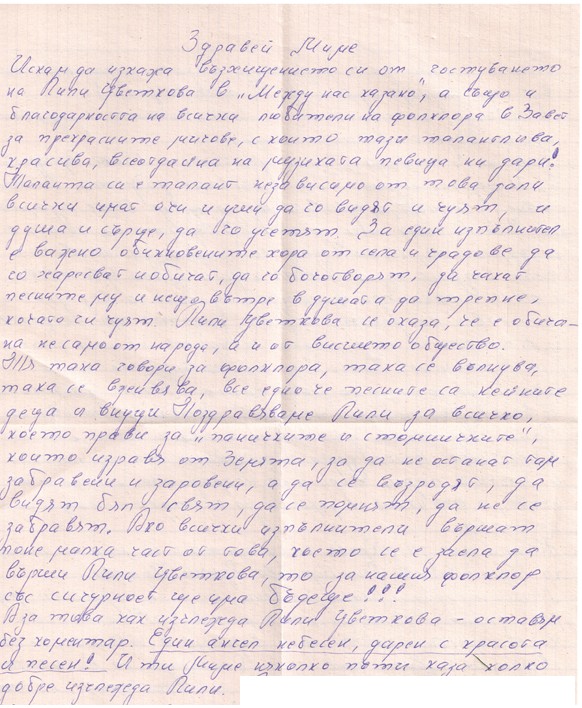 Здравей Миме
Искам да изкажа възхищението си от гостуването
на Лили Цветкова в „Между нас казано", а също и
благодарността на всички любители на фолклора в Завет
за прекрасните мигове, с които тази талантлива,
красива, всеотдайна на музиката певица ни дари!
Таланта си е талант независимо от това дали
всички имат очи и уши да го видят и чуят, и
душа и сърце, да го усетят. За един изпълнител
е важно обикновените хора от села и градове да
го харесват и обичат, да го боготворят, да чакат
песните му и нещо вътре в душата да трепне,
когато ги чуят. Лили Цветкова се оказа, че е обича-
на не само от народа, а и от висшето общество.
Тя така говори за фолклора, така се вълнува,
така се вживява, все едно че песните са нейните
деца и внуци. Поздравяваме Лили за всичко,
което прави за „паничките и стомничките",
които изравя от Земята, за да не останат там
забравени и заровени, а да се възродят, да
видят бял свят, да се помнят, да не се
забравят. Ако всички изпълнители вършат
поне малка част от това, което се е заела да
върши Лили Цветкова, то за нашия фолклор
със сигурност ще има бъдеще!!!
А за това как изглежда Лили Цветкова - оставям
без коментар. Един ангел небесен, дарен с красота
и песен! И ти Миме няколко пъти каза колко
добре изглежда Лили.